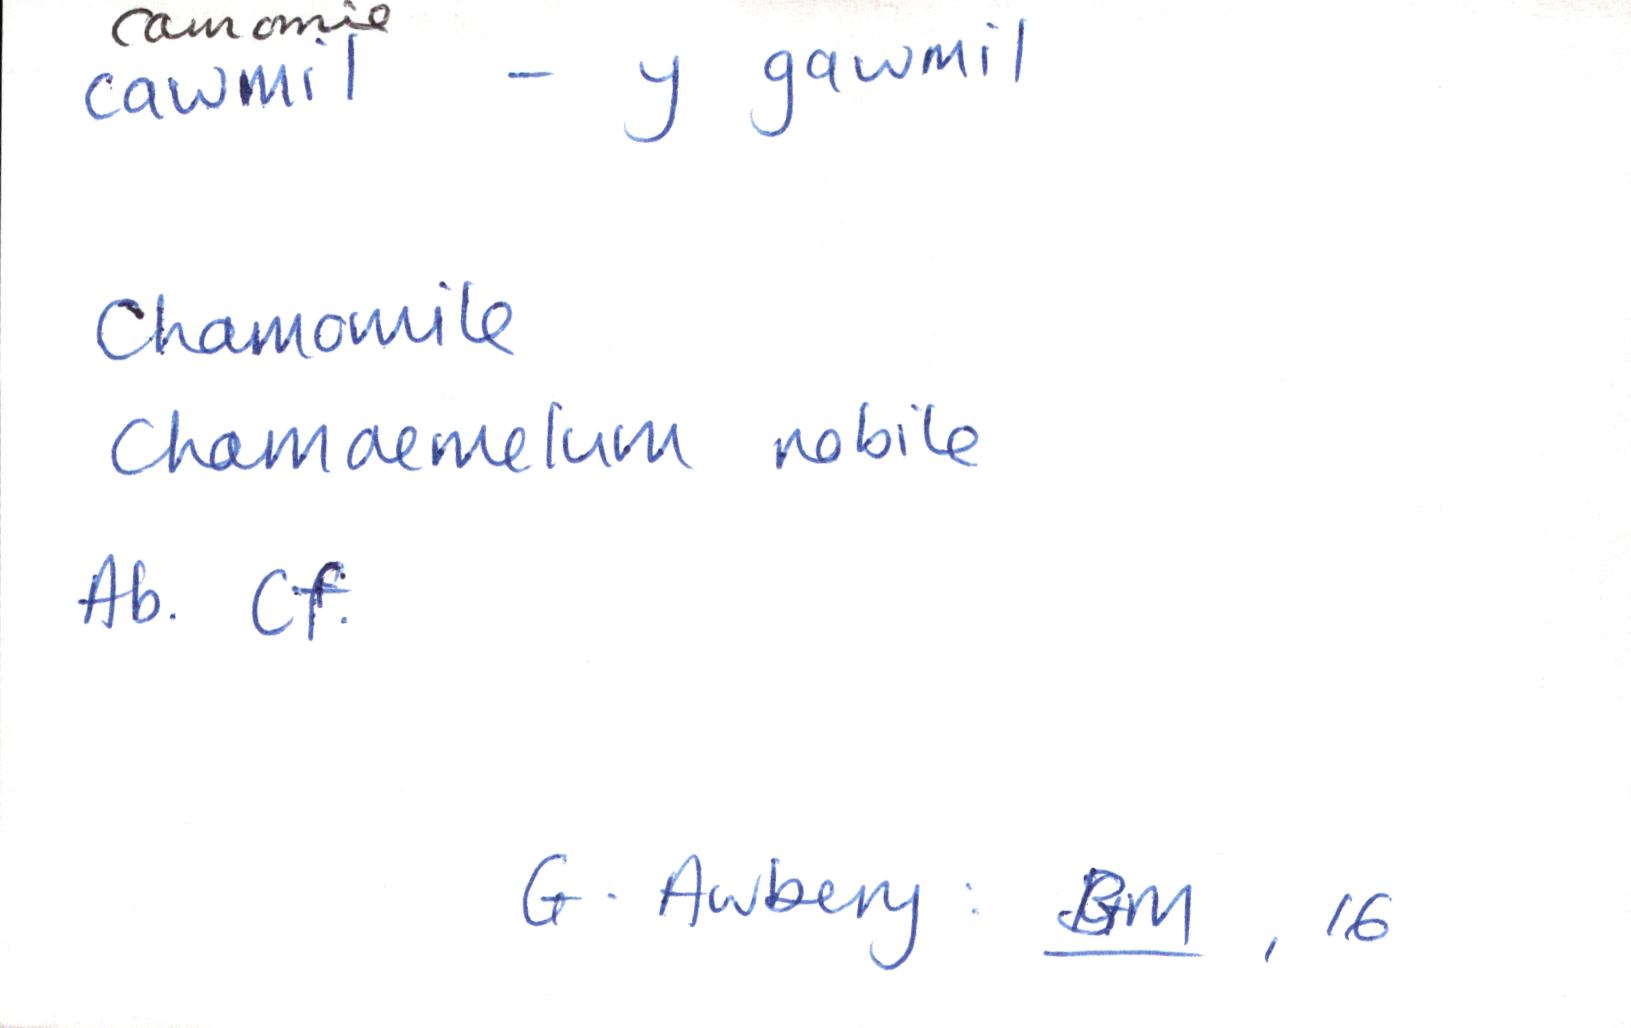 camomie
cawmil - y gawmil
Chamomile
Chamaemelum nobile
Ab. Cf.
G. Awbery: BM, 16